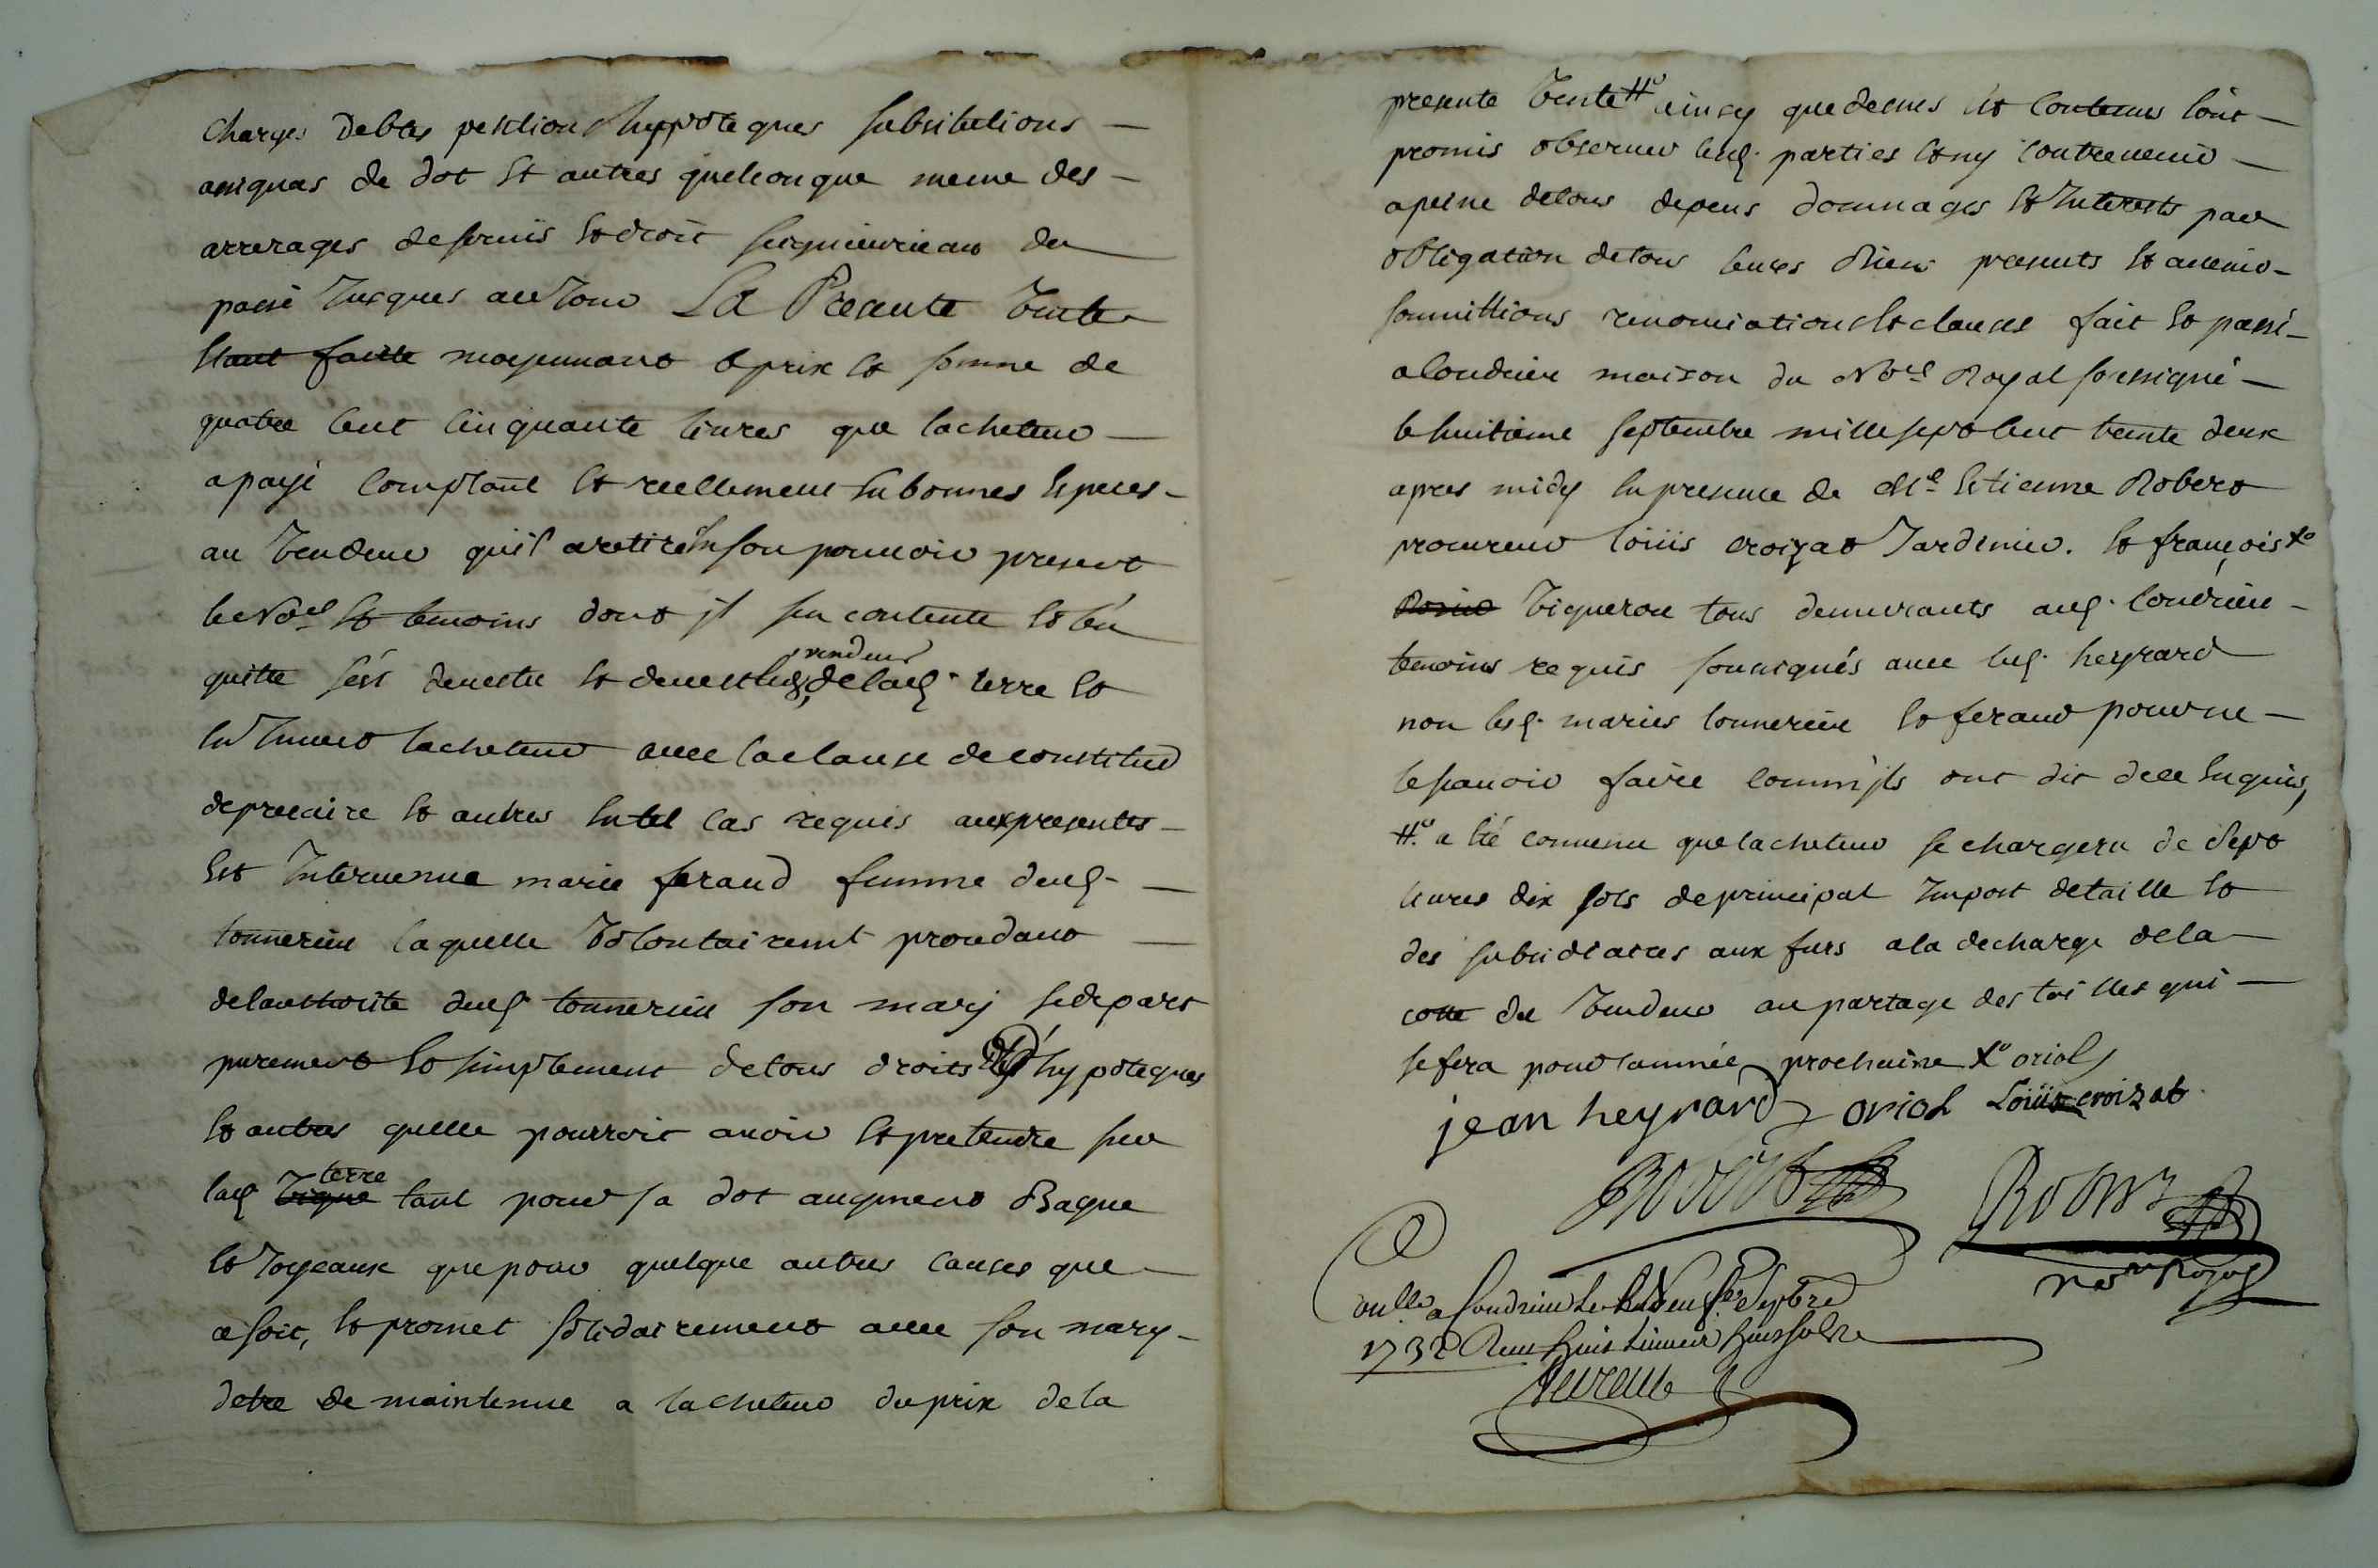 charges debtes pention hyppoteques subsitutions
assignas de dot et autres quelconque meme des
arrerages deservis et droit seignieurieaux du
passé Jusques au Jour La Presente Vente
etant faitte moyennant le prix et somme de
quatre cent cinquante livres que lacheteur
a payé comptant et reellement en bonnes especes
au Vendeur quil a retiré en son pouvoir present
le No.re et temoins dont jl sen contente et len
quitte sést devestu et devest led. vendeur de lad. terre et
en Invest lacheteur avec la clause de constitud
de precaire et autres en tel cas requis aux presentes
est Intervenue marie feraud femme dud.
tonnerieu laquelle Volontairemt procedant
de lauthorité dud. tonnerieu son mary se depart
purement et simplement de tous droits hypoteques
et autres quelle pourroit avoir et pretendre sur
lad. vigne terre tant pour sa dot augment Bague
et Joyeaux que pour quelque autres causes que
ce soit, et promet solidairement avec son mary
detre de maintenue a lacheteur du prix de la
presente Vente #o ainsy que dessus est contenu tout
promis observer lesd. parties et ny contrevenir
a peine de tous depens dommages et Interests par
obligation de tous leurs Biens presents et avenir
soumittions renonciations et clauses fait et passé
a Condrieu maison du No.re Royal soussigné
le huitieme septembre mille sept cent trente deux
apres midy en presence de Me. Estienne Robert
procureur loüis croizat Jardinier. et francois Xo
Vigneron tous demeurants aud. Condrieu
temoins requis soussignés avec led. heyrard
non lesd. maries tonnerieu et feraud pour ne
le scavoir faire comm'jls ont dit de ce enquis,
#o. a été convenu que lacheteur se chargera de sept
livres dix sols de principal Impost de taille et
des subsidiaires aux furs a la decharge de la
cotte du Vendeur au partage des tailles qui
se fera pour lannée prochaine Xo oriol
jean heyrard oriol Loüis croizat
Robert Robert
no.re Royal
a Condrieu Le 7bre
1732 Receu